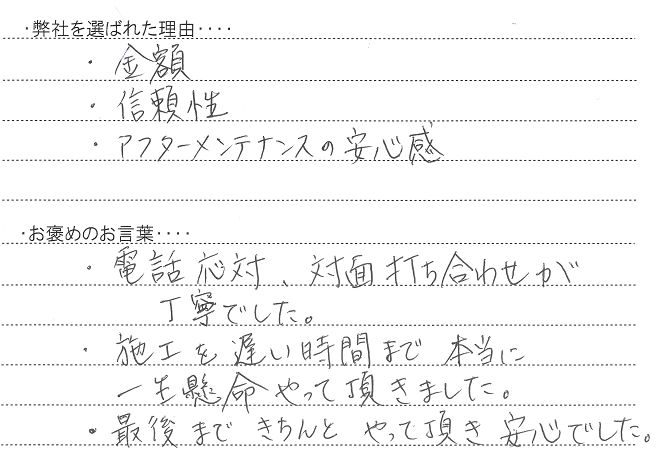 ・弊社を選ばれた理由‥‥
・金額
・信頼性
・アフターメンテナンスの安心感
・お褒めのお言葉‥‥
・電話応対、対面打ち合わせが
丁寧でした。
・施工を遅い時間まで本当に
一生懸命やって頂きました。
・最後まできちんとやって頂き安心でした。